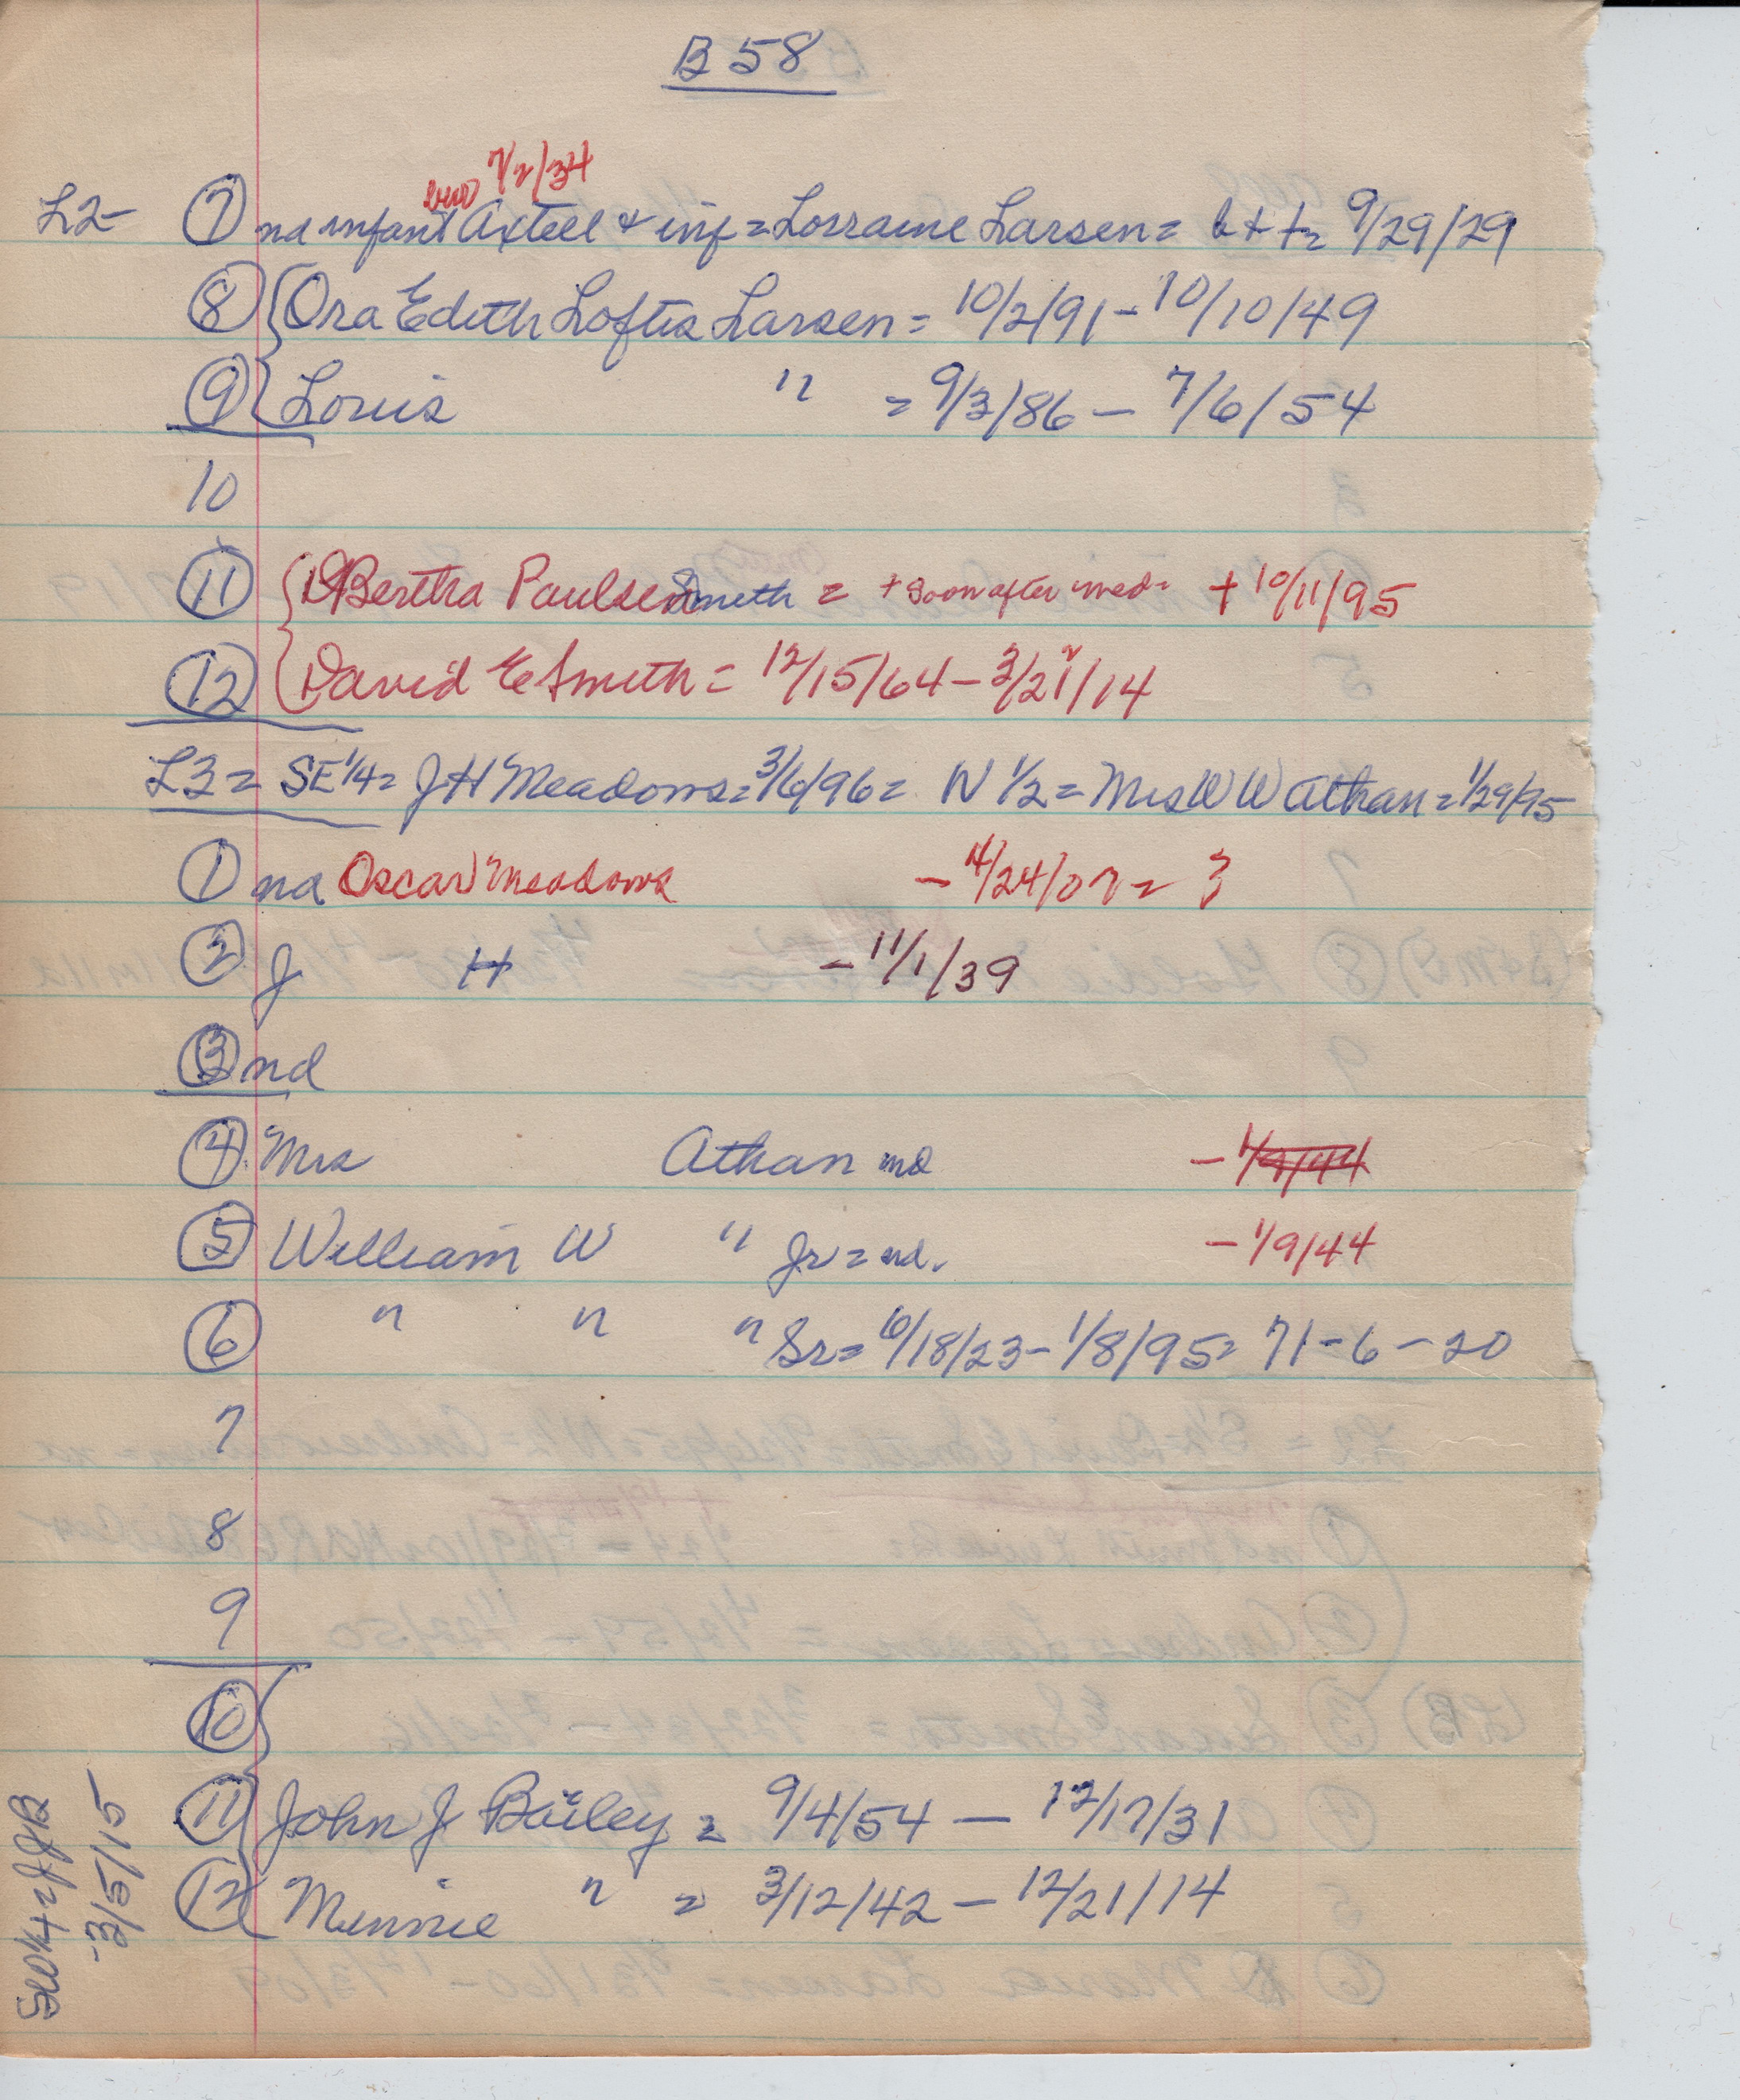 B 58
7/2/34
L2- 7 na infant Axtell & inf = Lorraine Larsen = b + t = 9/29/29
8 { Ora Edith Loftis Larsen = 10/2/91 - 10/10/49
9 { Louis " = 9/3/86 - 7/6/54
10
11 { Bertha Paulsen Smith = + soon after med = + 10/11/95
12 { David E Smith = 12/15/64 - 3/21/14
L3 = SE 1/4 = J H Meadows = 3/6/96 = N 1/2 = Mrs W W Athan = 1/29/95
1 na Oscar Meadows - 4/24/07 = 3
2 J H - 11/1/39
3 nd
4 Mrs Athan nd - 1/9/44
5 William W " Jr = nd. - 1/9/44
6 " " " Sr = 6/18/23 - 1/8/95 = 71-6-20
7
8
9
10 {
11 { John J Bailey = 9/4/54 - 12/17/31
12 { Minnie " = 3/12/42 - 12/21/14
SW 1/4 = J J B
3/5/15